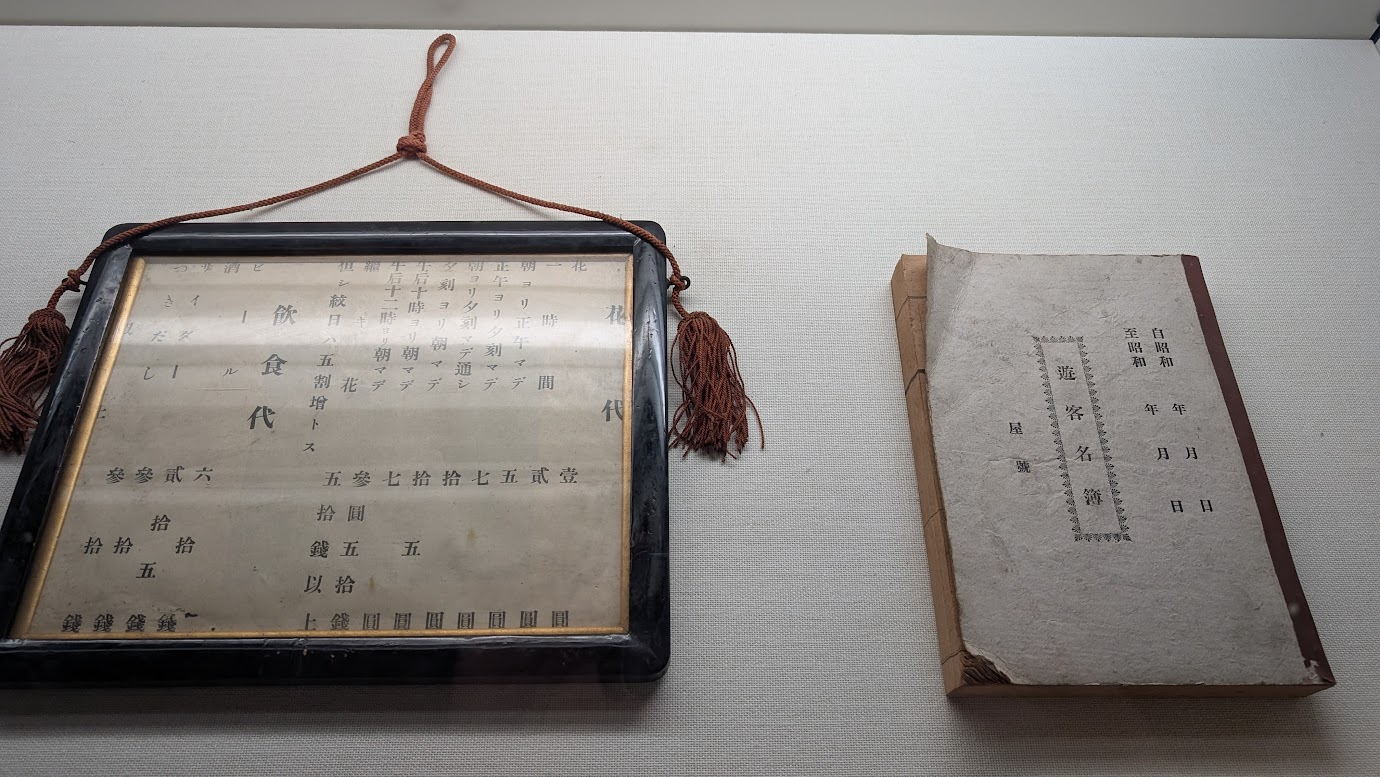 花代
花一時間 壹圓
朝ヨリ正午マデ 貳圓
正午ヨリ夕刻マデ 五圓
朝ヨリ夕刻マデ通シ 七圓
夕刻ヨリ朝マデ 拾圓
午后十時ヨリ朝マデ 拾五圓
午后十二時ヨリ朝マデ 七圓
繼キ花 參圓五拾錢
五拾錢以上
但シ紋日ハ五割增トス
飲食代
ビール 六拾錢
酒 貳拾五錢
サイダー 參拾錢
つきだし 參拾錢
自昭和 年 月 日
至昭和 年 月 日
遊客名簿
屋號